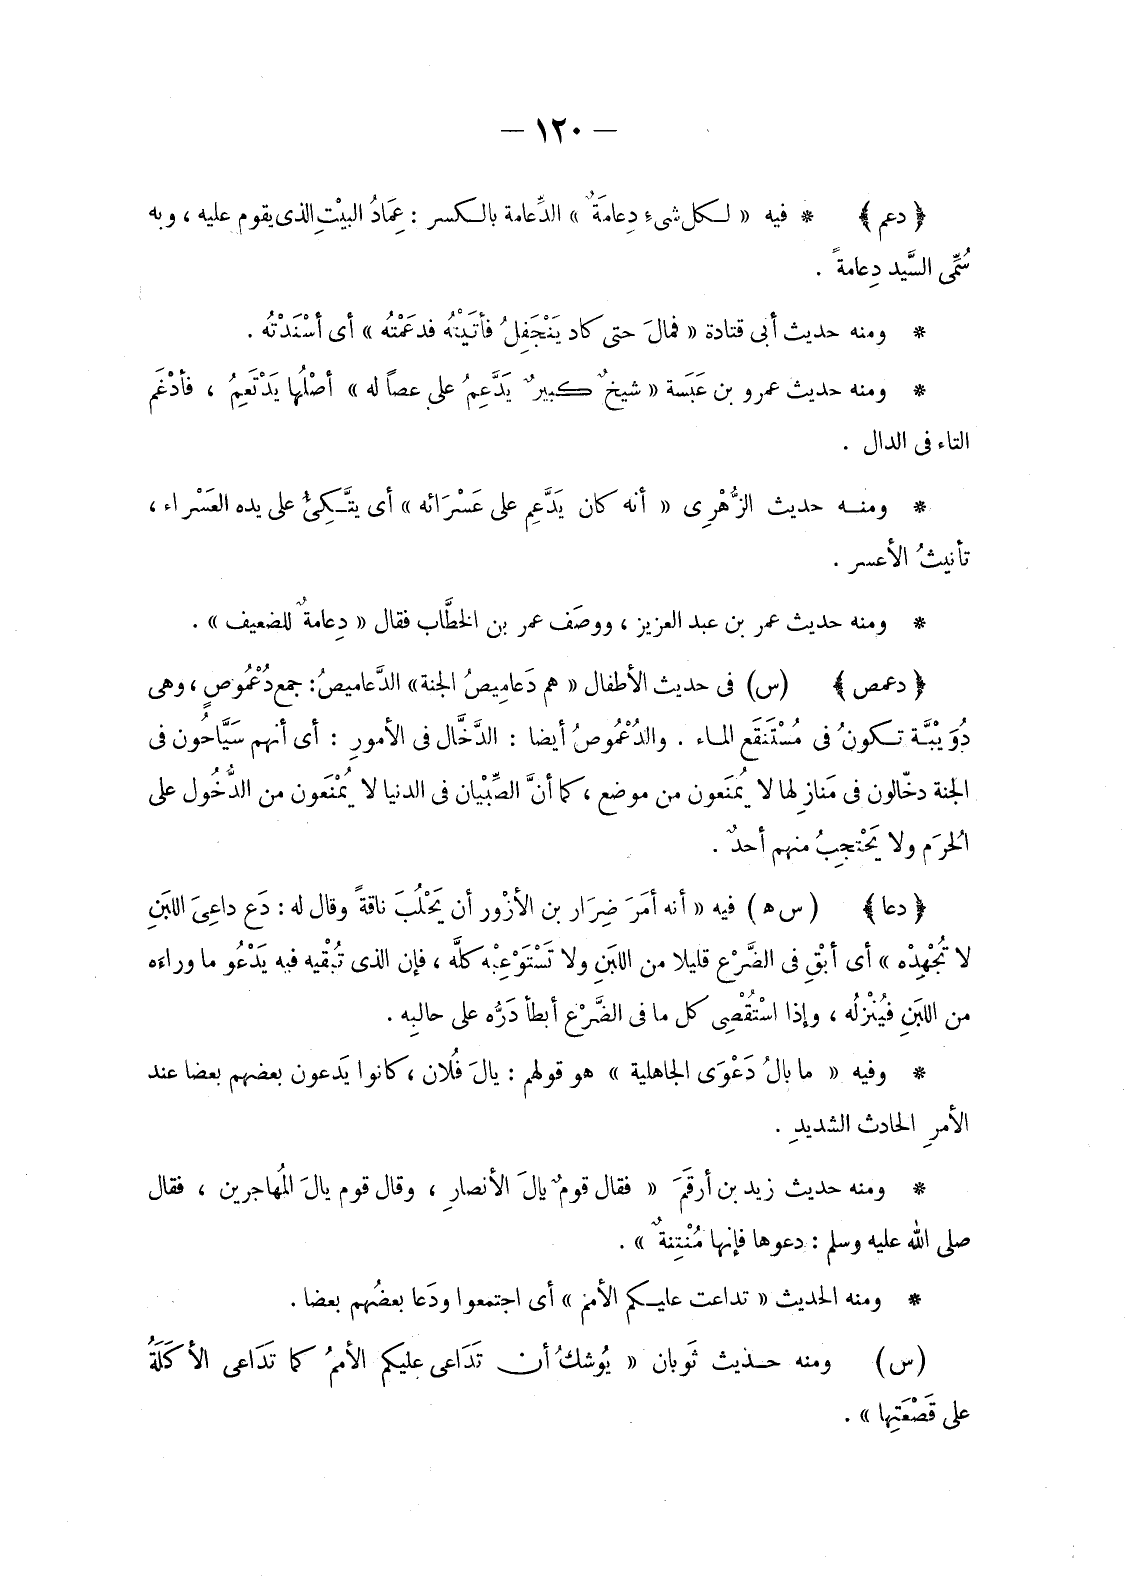 — ١٢٠ —
﴿ دعم ﴾ * فيه « لكل شىءٍ دِعامَةٌ » الدِّعامة بالكسر : عِمَادُ البيْتِ الذى يقوم عليه ، وبه
سُمِّى السَّيد دِعامةً .
* ومنه حديث أبى قتادة « فمالَ حتى كاد يَنْجَفِلُ فأتَيْتُه فدعَمْتُه » أى أسْنَدْتُه .
* ومنه حديث عمرو بن عَبَسة « شيخٌ كبيرٌ يَدَّعِمُ على عصاً له » أصْلُها يَدْتَعِمُ ، فأدْغَم
التاء فى الدال .
* ومنه حديث الزُّهْرِى « أنه كان يَدَّعِم على عَسْرَائه » أى يتَّكِئُ على يده العَسْراء ،
تأنيثُ الأعسر .
* ومنه حديث عمر بن عبد العزيز ، ووصَف عمر بن الخطَّاب فقال « دِعامةٌ للضعيف » .
﴿ دعمص ﴾ (س) فى حديث الأطفال « هم دَعامِيصُ الجنة » الدَّعاميصُ : جمع دُعْمُوصٍ ، وهى
دُوَيْبَّة تكونُ فى مُسْتَنقَع الماء . والدُعْمُوصُ أيضا : الدَّخَّال فى الأمورِ : أى أنهم سَيَّاحُون فى
الجنة دخّالون فى مَنازِلها لا يُمنَعون من موضع ، كما أنَّ الصِّبْيان فى الدنيا لا يُمْنَعون من الدُّخُول على
الحُرَم ولا يَحْتجِبُ منهم أحدٌ .
﴿ دعا ﴾ (س ه) فيه « أنه أمَرَ ضِرَار بن الأزْور أن يَحْلُبَ ناقةً وقال له : دَع داعِىَ اللبَنِ
لا تُجْهِدْه » أى أبْقِ فى الضَّرْع قليلا من اللبَنِ ولا تَسْتَوْعِبْه كلَّه ، فإن الذى تُبْقيه فيه يَدْعُو ما وراءَه
من اللبَنِ فيُنْزِلُه ، وإذا اسْتُقْصِى كل ما فى الضَّرْع أبطأ دَرُّه على حالبِه .
* وفيه « ما بالُ دَعْوَى الجاهلية » هو قولهم : يالَ فُلان ، كانوا يَدعون بعضهم بعضا عند
الأمرِ الحادث الشديدِ .
* ومنه حديث زيد بن أرقَمَ « فقال قومٌ يالَ الأنصارِ ، وقال قوم يالَ المُهاجرين ، فقال
صلى الله عليه وسلم : دعوها فإنها مُنْتِنةٌ » .
* ومنه الحديث « تداعت عليكم الأمم » أى اجتمعوا ودَعا بعضُهم بعضا .
(س) ومنه حديث ثَوبان « يُوشكُ أن تَدَاعى عليكم الأممُ كما تَدَاعى الأكَلَةُ
على قَصْعَتِها » .